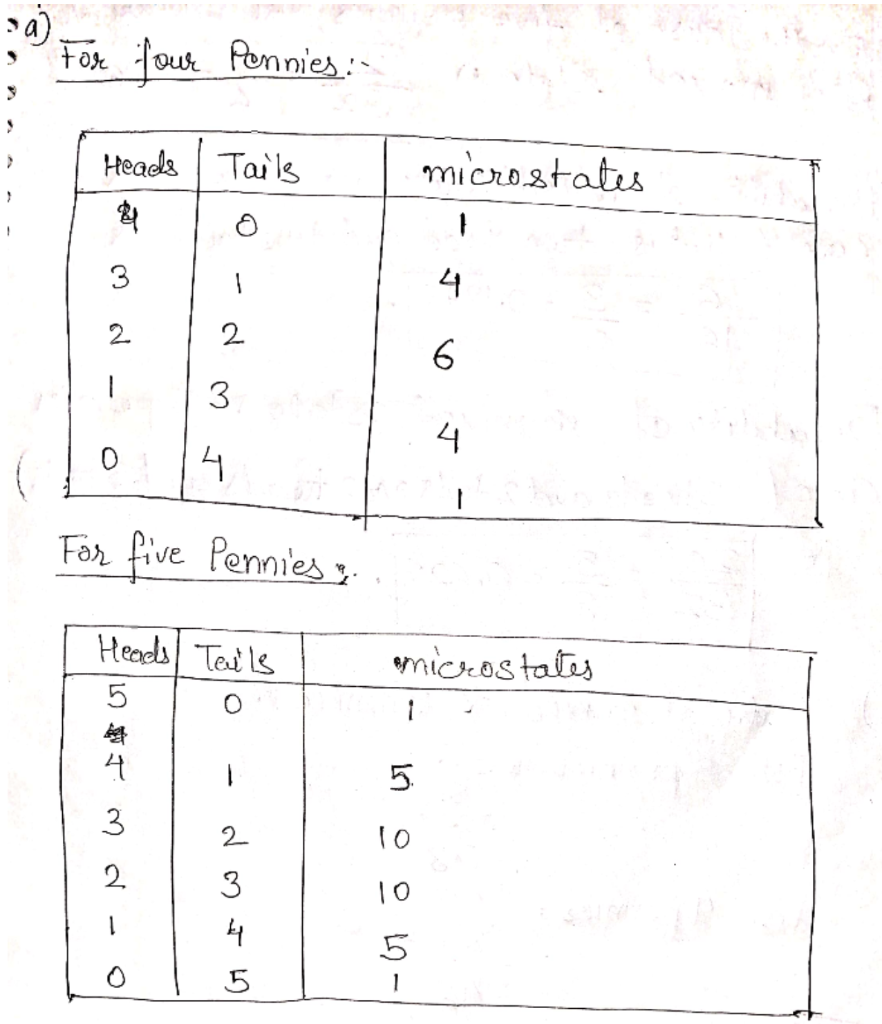 a)
For four Pennies:-
Heads Tails microstates
4 0 1
3 1 4
2 2 6
1 3 4
0 4 1
For five Pennies:-
Heads Tails microstates
5 0 1
4 1 5
3 2 10
2 3 10
1 4 5
0 5 1